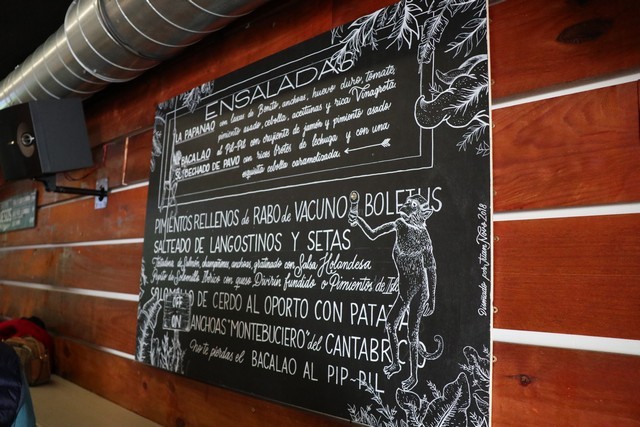 ENSALADAS
LA PAPANAO con lascas de Bonito, anchoas, huevo duro, tomate,
pimiento asado, cebolla, aceitunas y rica Vinagreta
BACALAO al Pil-Pil con crujiente de jamón y pimiento asado
PECHADO DE PAVO con ricos brotes de lechuga y con una
exquisita cebolla caramelizada
PIMIENTOS RELLENOS de RABO de VACUNO BOLETUS
SALTEADO DE LANGOSTINOS Y SETAS
de Salmón, champiñones, anchoas, gratinado con Salsa Holandesa
de Solomillo Ibérico con queso fundido o Pimientos de
SOLOMILLO DE CERDO AL OPORTO CON PATATA
ANCHOAS "MONTEBUCIERO" del CANTABRICO
No te pierdas el BACALAO AL PIP-PIL
OFF
ON
Diseñado por 2018